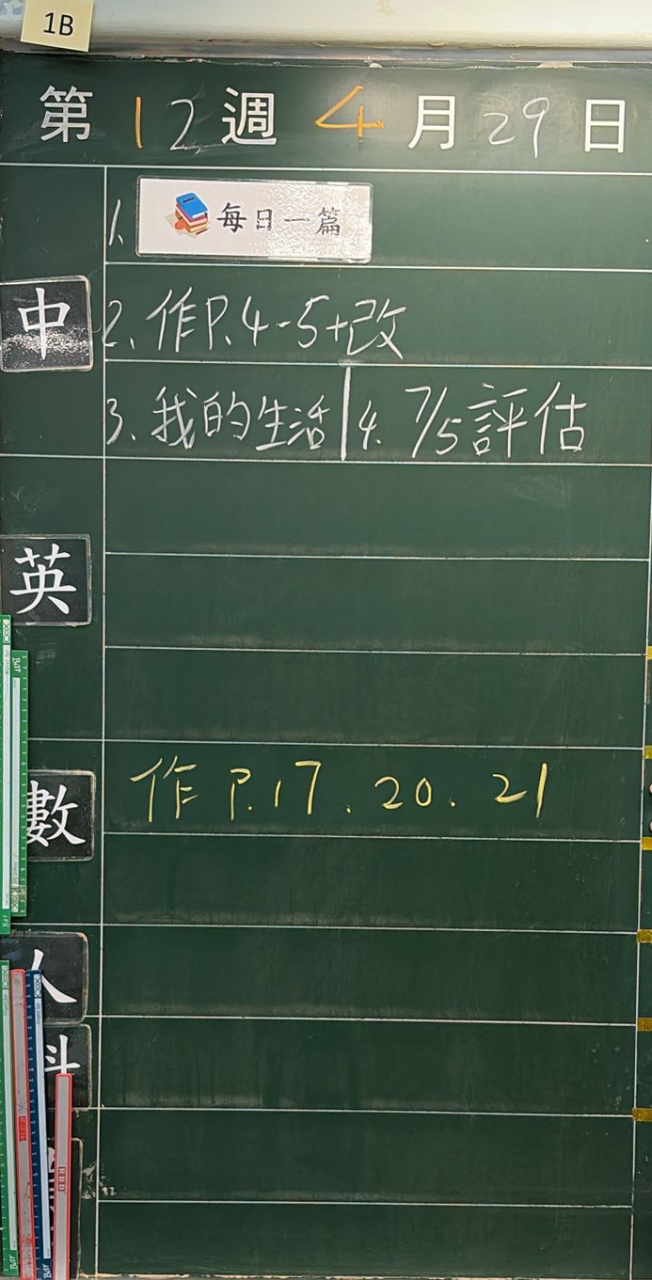 1B
第12週4月29日
1. 每日一篇
中
2. 作P.4-5+改
3. 我的生活|4. 7/5評估
英
數
作P.17、20、21
人
科